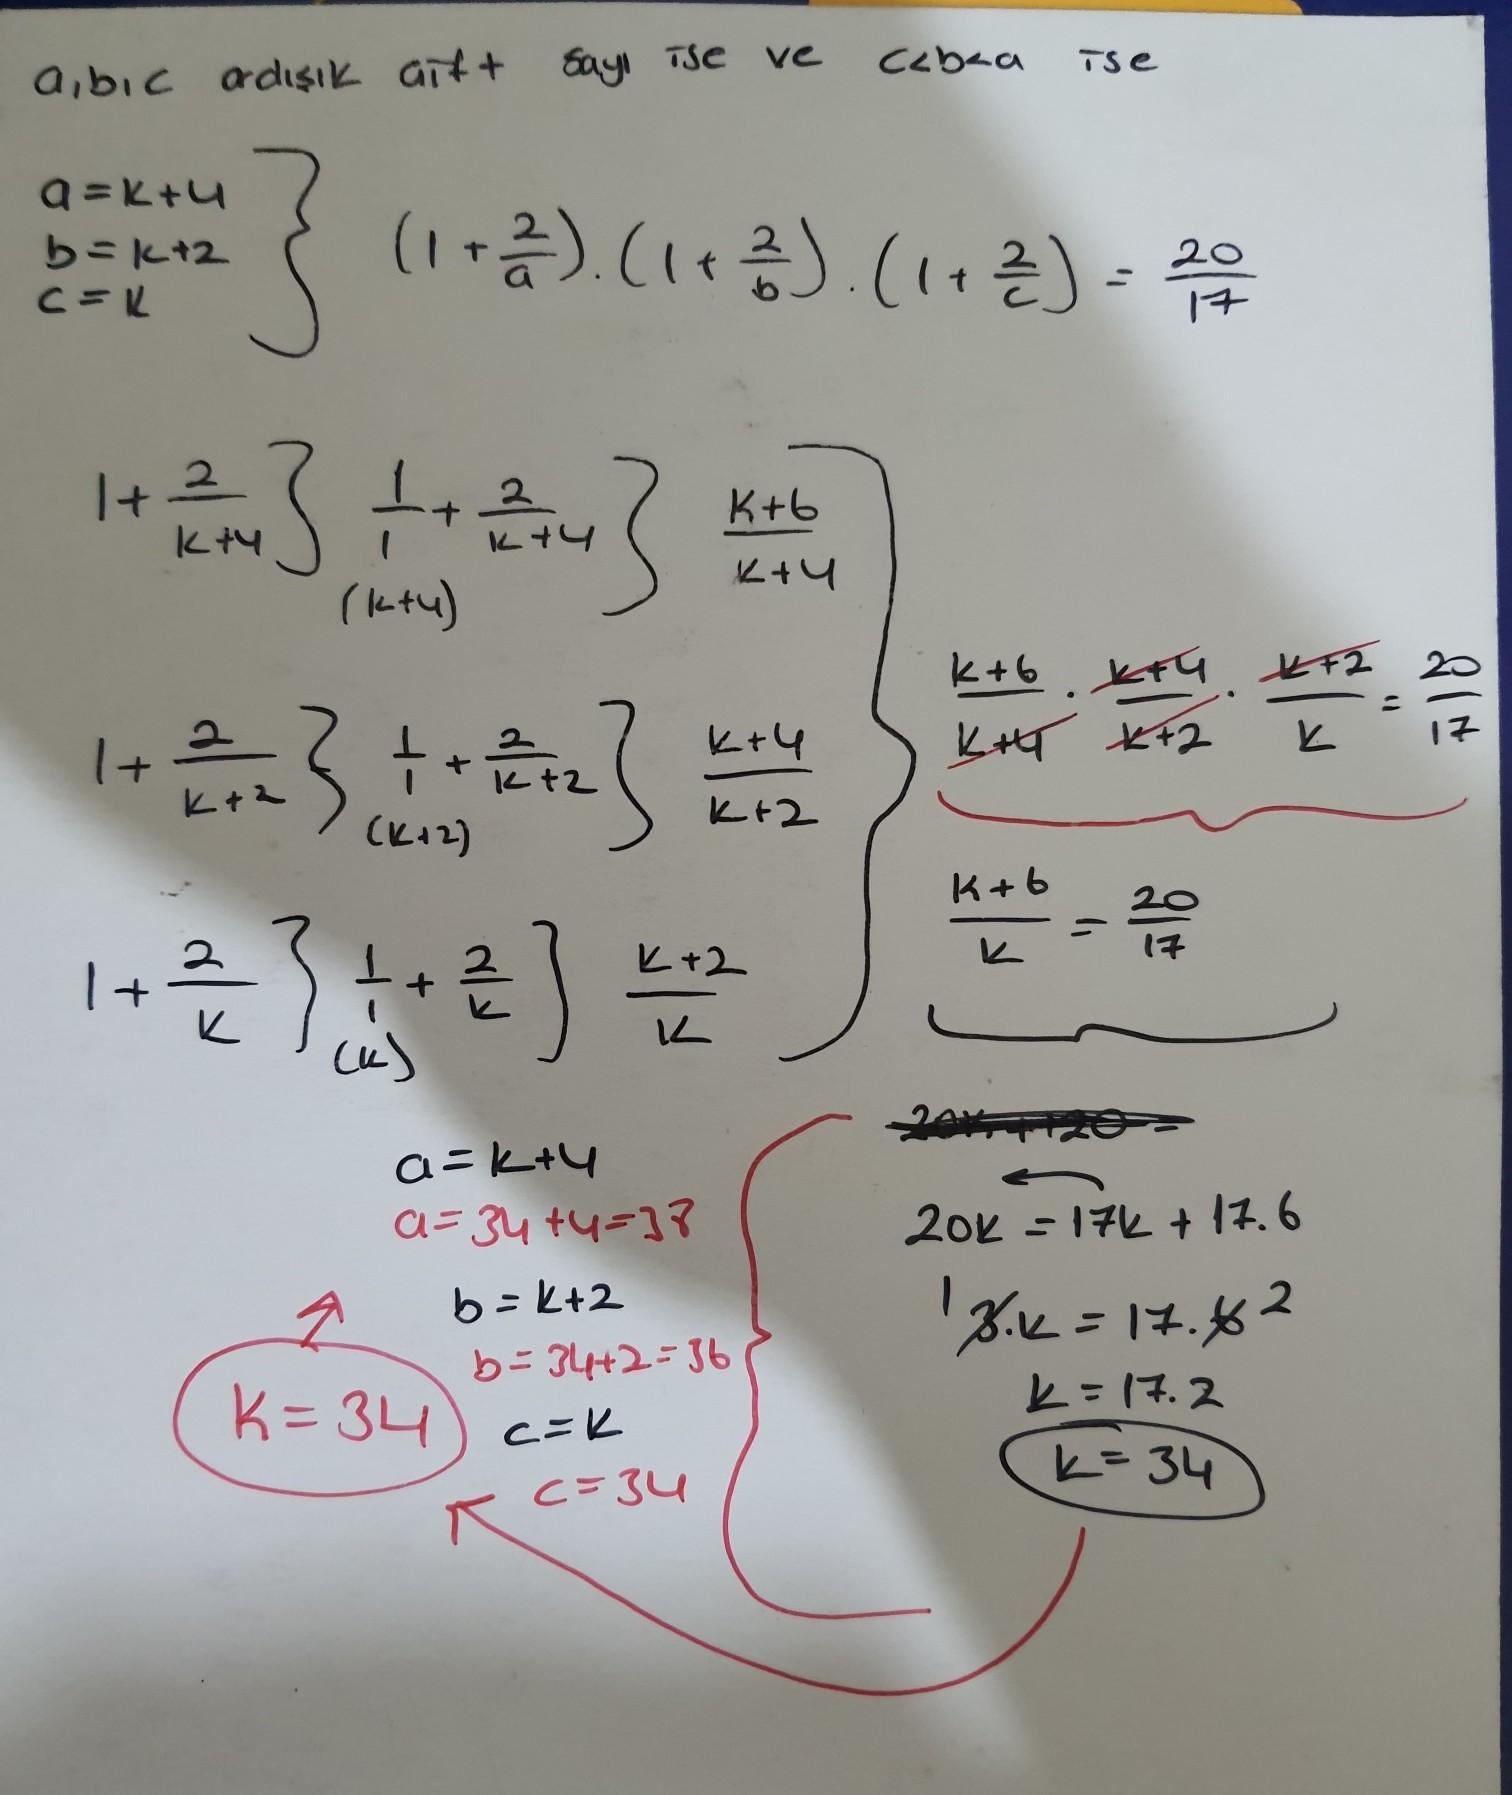 a,b,c ardışık çift sayı ise ve c<b<a ise
a=k+4
b=k+2
c=k
(1+2/a).(1+2/b).(1+2/c)=20/17
1+2/k+4 } 1/1+2/k+4 } k+6/k+4
(k+4)
1+2/k+2 } 1/1+2/k+2 } k+4/k+2
(k+2)
1+2/k } 1/1+2/k } k+2/k
(k)
k+6/k+4 . k+4/k+2 . k+2/k = 20/17
k+6/k = 20/17
20k=17k+17.6
1 3.k=17.6 2
k=17.2
k=34
a=k+4
a=34+4=38
b=k+2
b=34+2=36
c=k
c=34
k=34